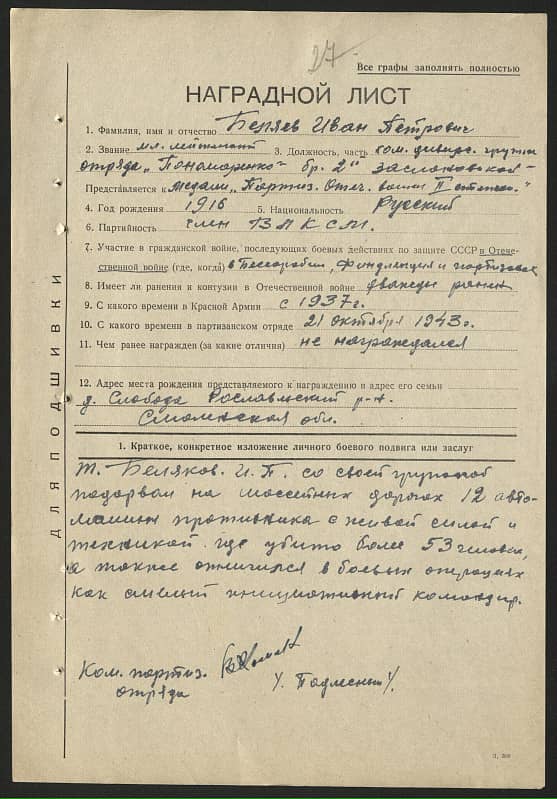 27
Все графы заполнять полностью
НАГРАДНОЙ ЛИСТ
1. Фамилия, имя и отчество Беляев Иван Петрович
2. Звание мл. лейтенант 3. Должность, часть ком. диверс. группы
отряда „Пономаренко" бр. 2"
Представляется к медали „Партиз. Отеч. войны II степени."
4. Год рождения 1916 5. Национальность Русский
6. Партийность член ВЛКСМ.
7. Участие в гражданской войне, последующих боевых действиях по защите СССР и Отече-
ственной войне (где, когда) в Бессарабии, Финляндии и партизанск
8. Имеет ли ранения и контузии в Отечественной войне дважды ранен
9. С какого времени в Красной Армии с 1937г.
10. С какого времени в партизанском отряде 21 октября 1943г.
11. Чем ранее награжден (за какие отличия) не награждался
12. Адрес места рождения представляемого к награждению и адрес его семьи
д. Слобода Рославльский р-н.
Смоленская обл.
ДЛЯ ПОДШИВКИ
1. Краткое, конкретное изложение личного боевого подвига или заслуг
т. Беляков. И. П. со своей группой
подорвал на шоссейных дорогах 12 авто-
машин противника с живой силой и
техникой где убито более 53 человек,
а также отличился в боевых операциях
как смелый инициативный командир.
Ком. партиз.
отряда
/Подлесный/.